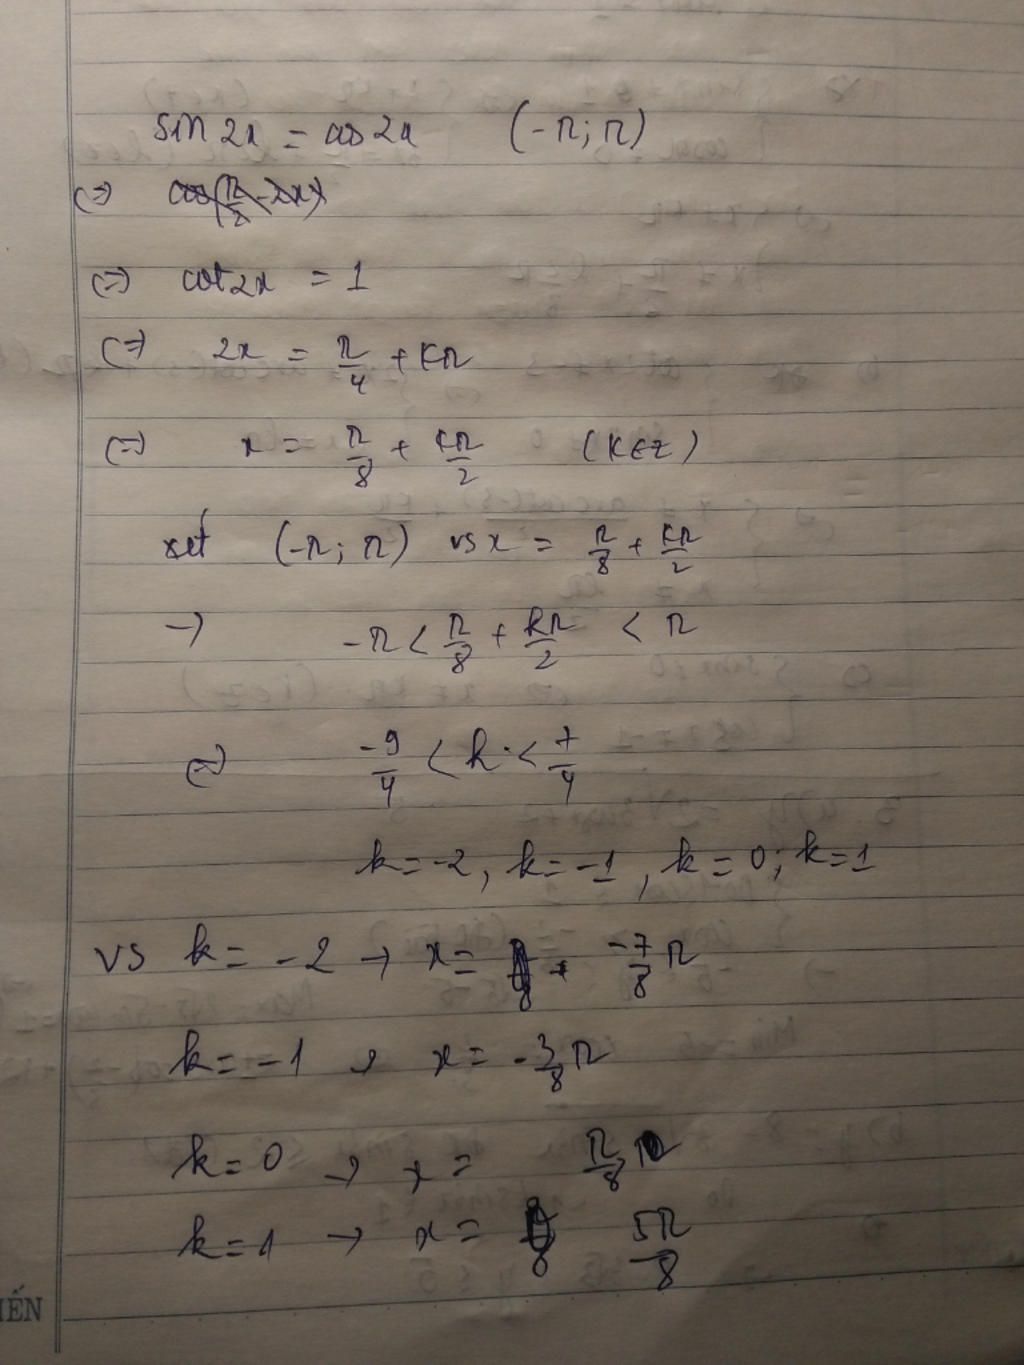 sin 2x = cos 2x (-π; π)
(=) cos(π/2 - 2x)
(=) cot 2x = 1
(=) 2x = π/4 + Kπ
(=) x = π/8 + Kπ/2 (K∈Z)
xét (-π; π) vs x = π/8 + Kπ/2
→ -π < π/8 + kπ/2 < π
(=) -9/4 < k < 7/4
k = -2, k = -1, k = 0; k = 1
vs k = -2 → x = -7/8 π
k = -1 → x = -3/8 π
k = 0 → x = π/8
k = 1 → x = 5π/8
IẾN